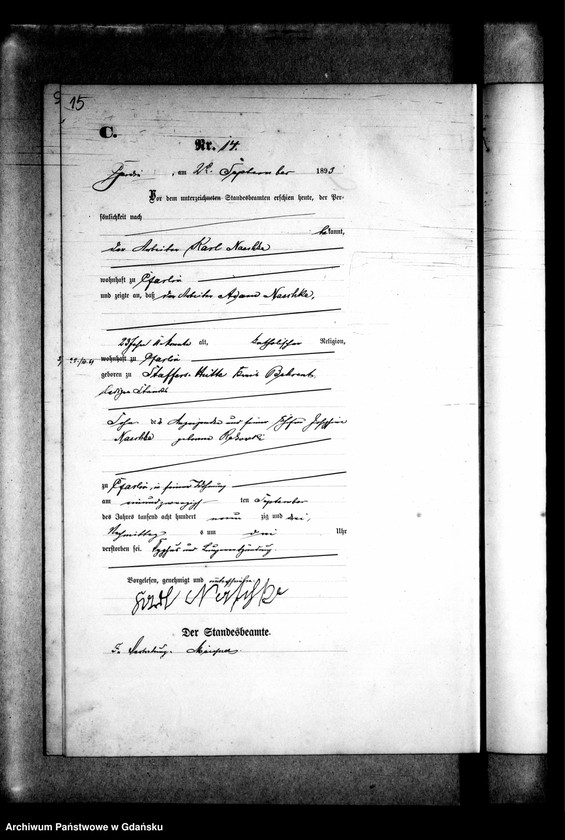 15
C.
Nr. 14.
, am 22. September 1893
Vor dem unterzeichneten Standesbeamten erschien heute, der Per-
sönlichkeit nach
bekannt,
der Arbeiter Karl Naeschke
wohnhaft zu
und zeigte an, daß der Arbeiter Adam Naeschke,
alt, katholischer Religion,
wohnhaft zu
geboren zu Kreis Behrent,
Sohn des Anzeigenden und seiner Ehefrau Josephine
Naeschke geborene
zu in seiner Wohnung
am einundzwanzig ten September
des Jahres tausend acht hundert neun zig und drei,
Nachmittags um drei Uhr
verstorben sei. Typhus und Lungenentzündung.
Vorgelesen, genehmigt und unterschrieben
Karl Naschke
Der Standesbeamte.
In Vertretung.
Archiwum Państwowe w Gdańsku